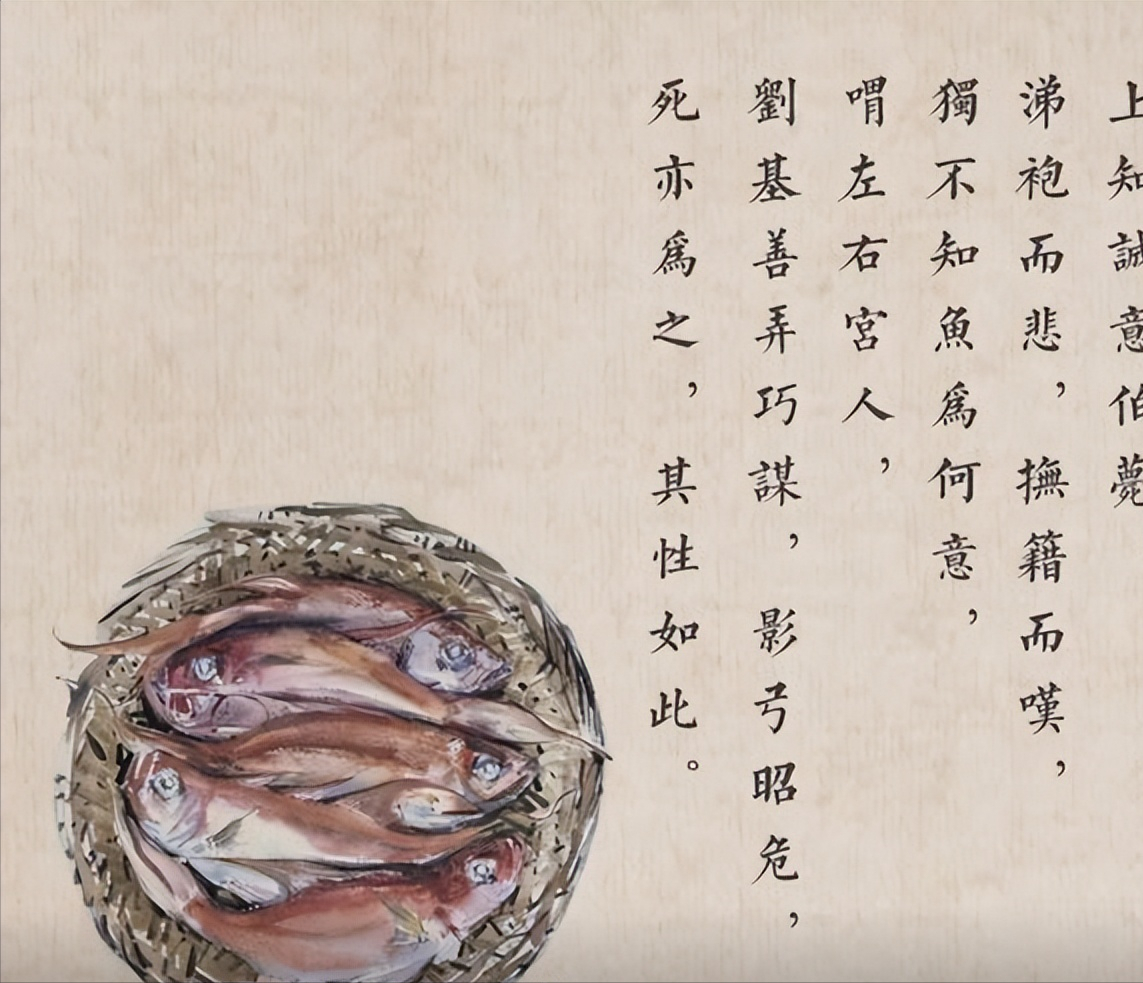 上知誠意伯薨
涕袍而悲，撫籍而嘆，
獨不知魚爲何意，
喟左右宮人，
劉基善弄巧謀，影弓昭危，
死亦爲之，其性如此。